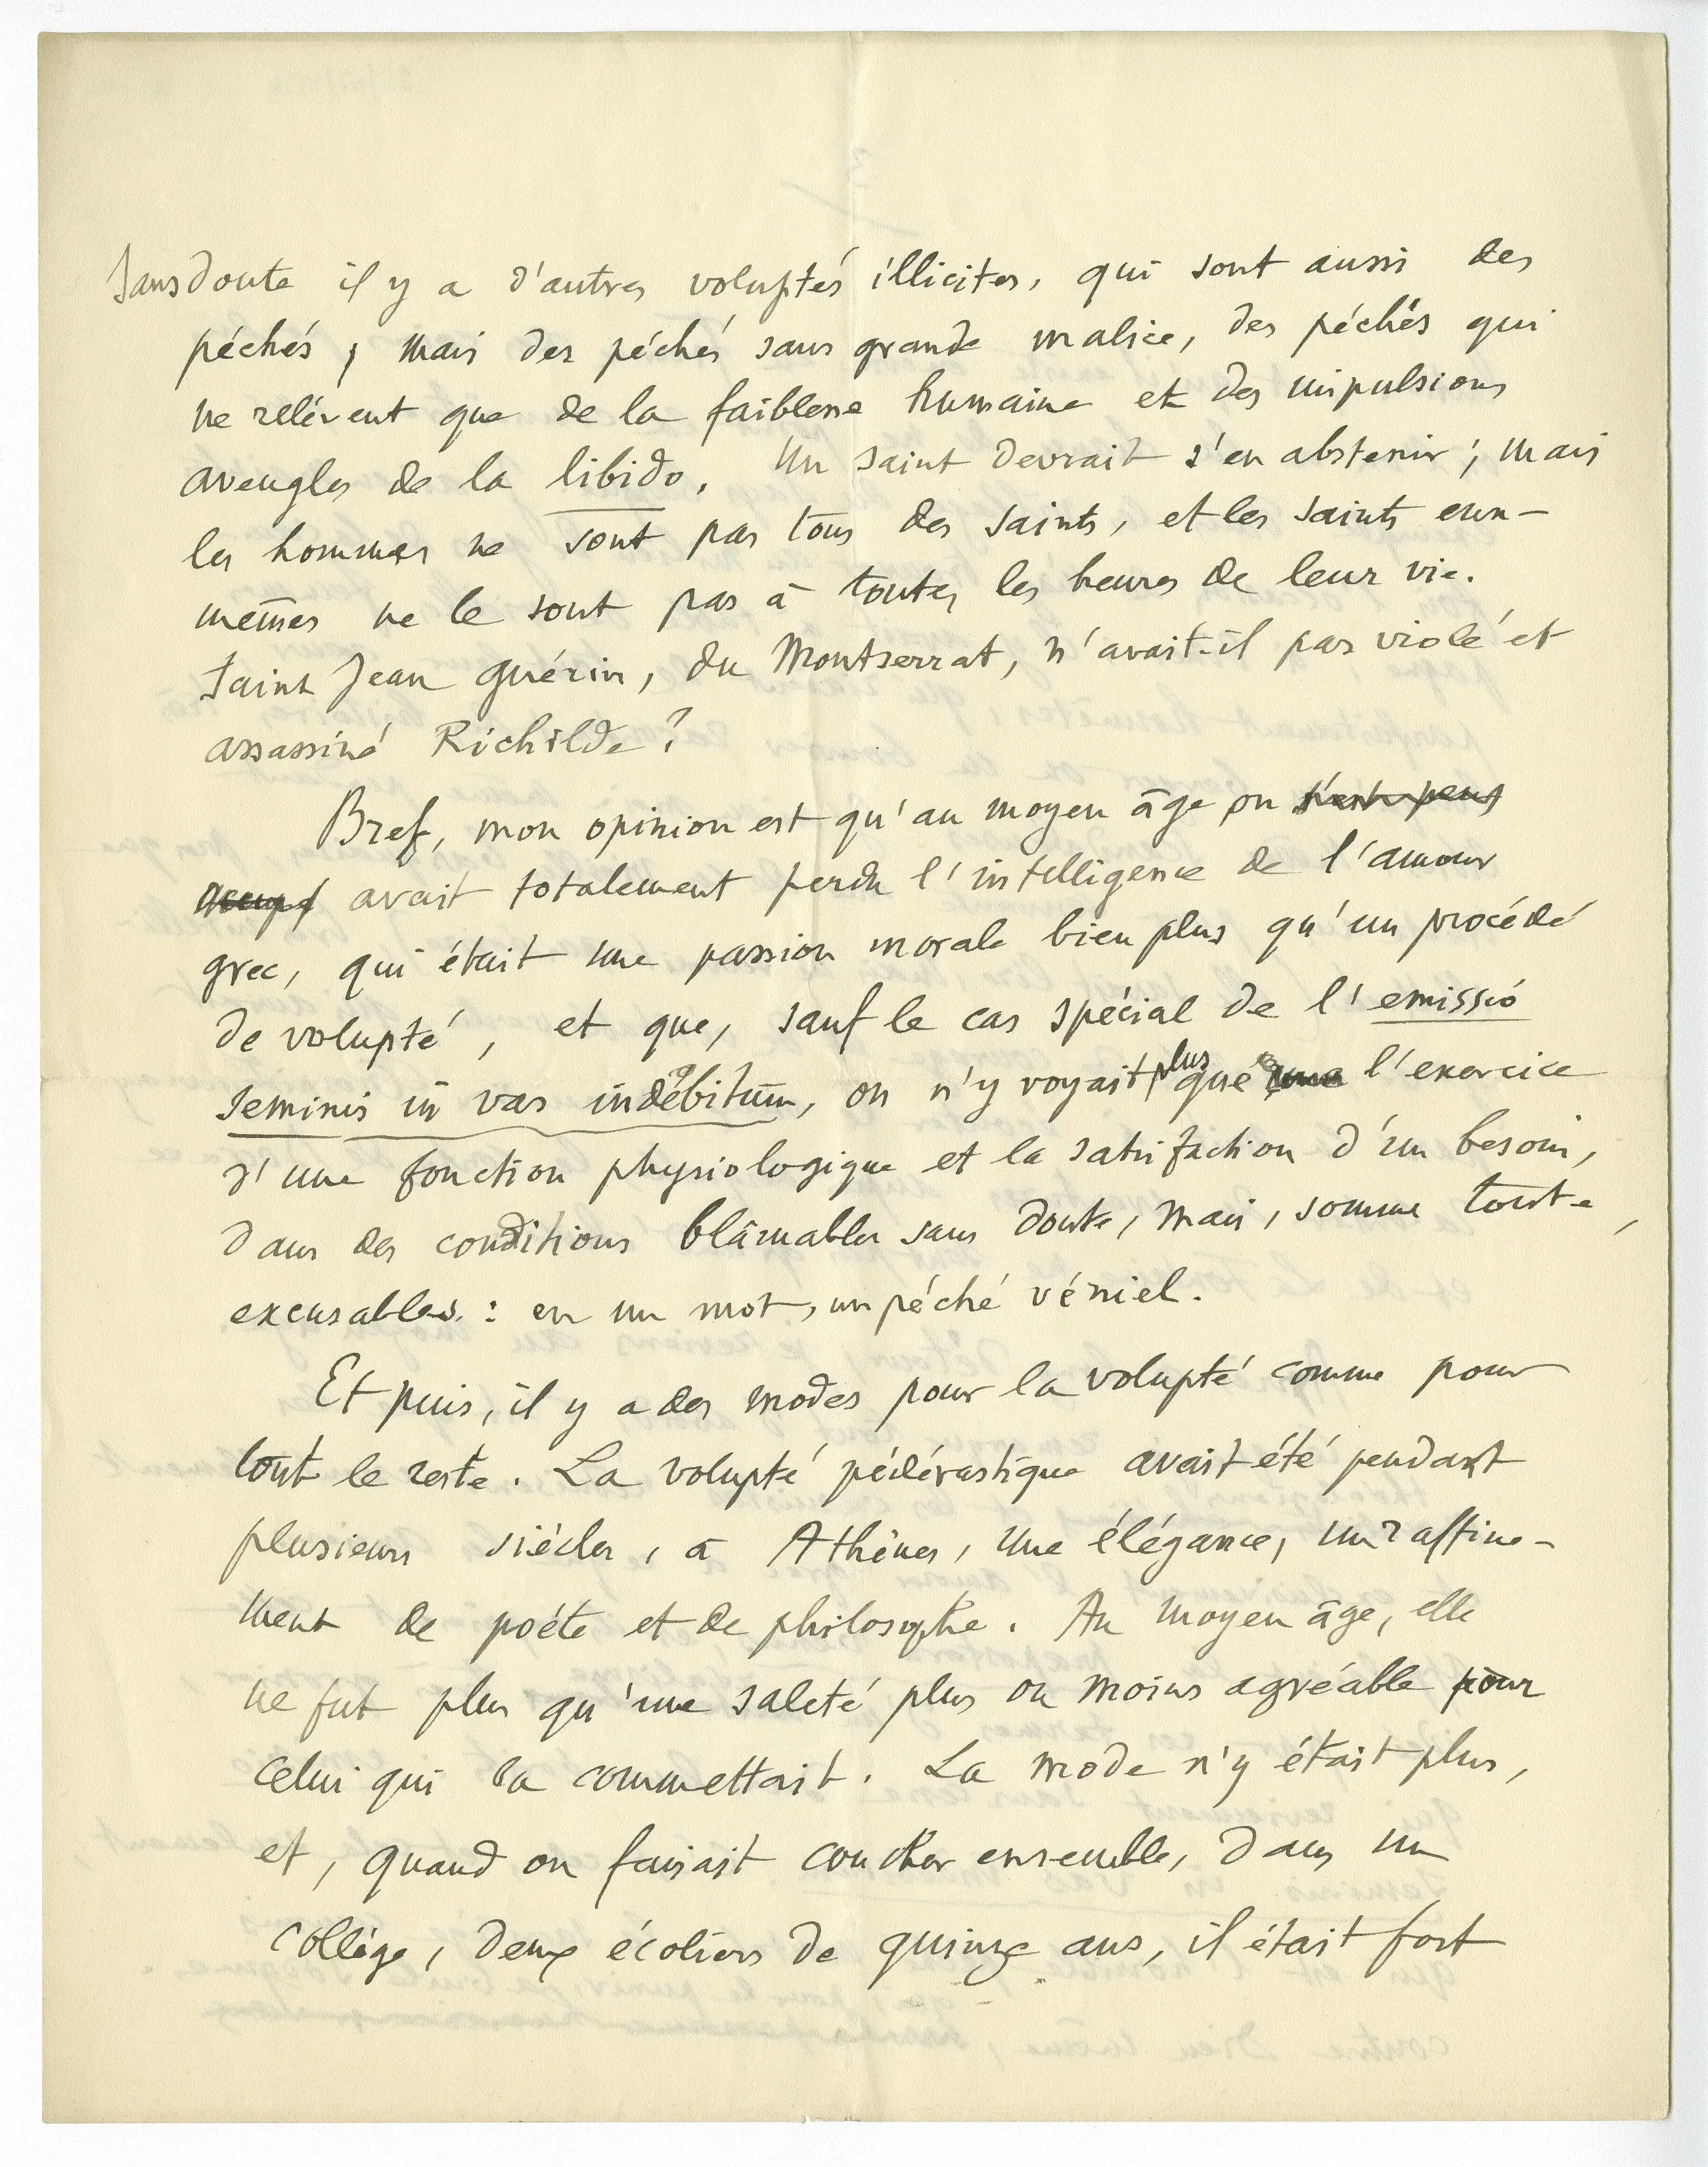 Sans doute il y a d'autres voluptés illicites, qui sont aussi des
péchés ; mais des péchés sans grande malice, des péchés qui
ne relèvent que de la faiblesse humaine et des impulsions
aveugles de la libido. Un saint devrait s'en abstenir ; mais
les hommes ne sont pas tous des saints, et les saints eux-
mêmes ne le sont pas à toutes les heures de leur vie.
Saint Jean Guérin, du Montserrat, n'avait-il pas violé et
assassiné Richilde ?
Bref, mon opinion est qu'au moyen âge on
avait totalement perdu l'intelligence de l'amour
grec, qui était une passion morale bien plus qu'un procédé
de volupté, et que, sauf le cas spécial de l'emissio
seminis in vas indebitum, on n'y voyait plus que l'exercice
d'une fonction physiologique et la satisfaction d'un besoin,
dans des conditions blâmables sans doute, mais, somme toute,
excusables : en un mot, un péché véniel.
Et puis, il y a des modes pour la volupté comme pour
tout le reste. La volupté pédérastique avait été pendant
plusieurs siècles, à Athènes, une élégance, un raffine-
ment de poète et de philosophe. Au moyen âge, elle
ne fut plus qu'une saleté plus ou moins agréable pour
celui qui la commettait. La mode n'y était plus,
et, quand on faisait coucher ensemble, dans un
collège, deux écoliers de quinze ans, il était fort